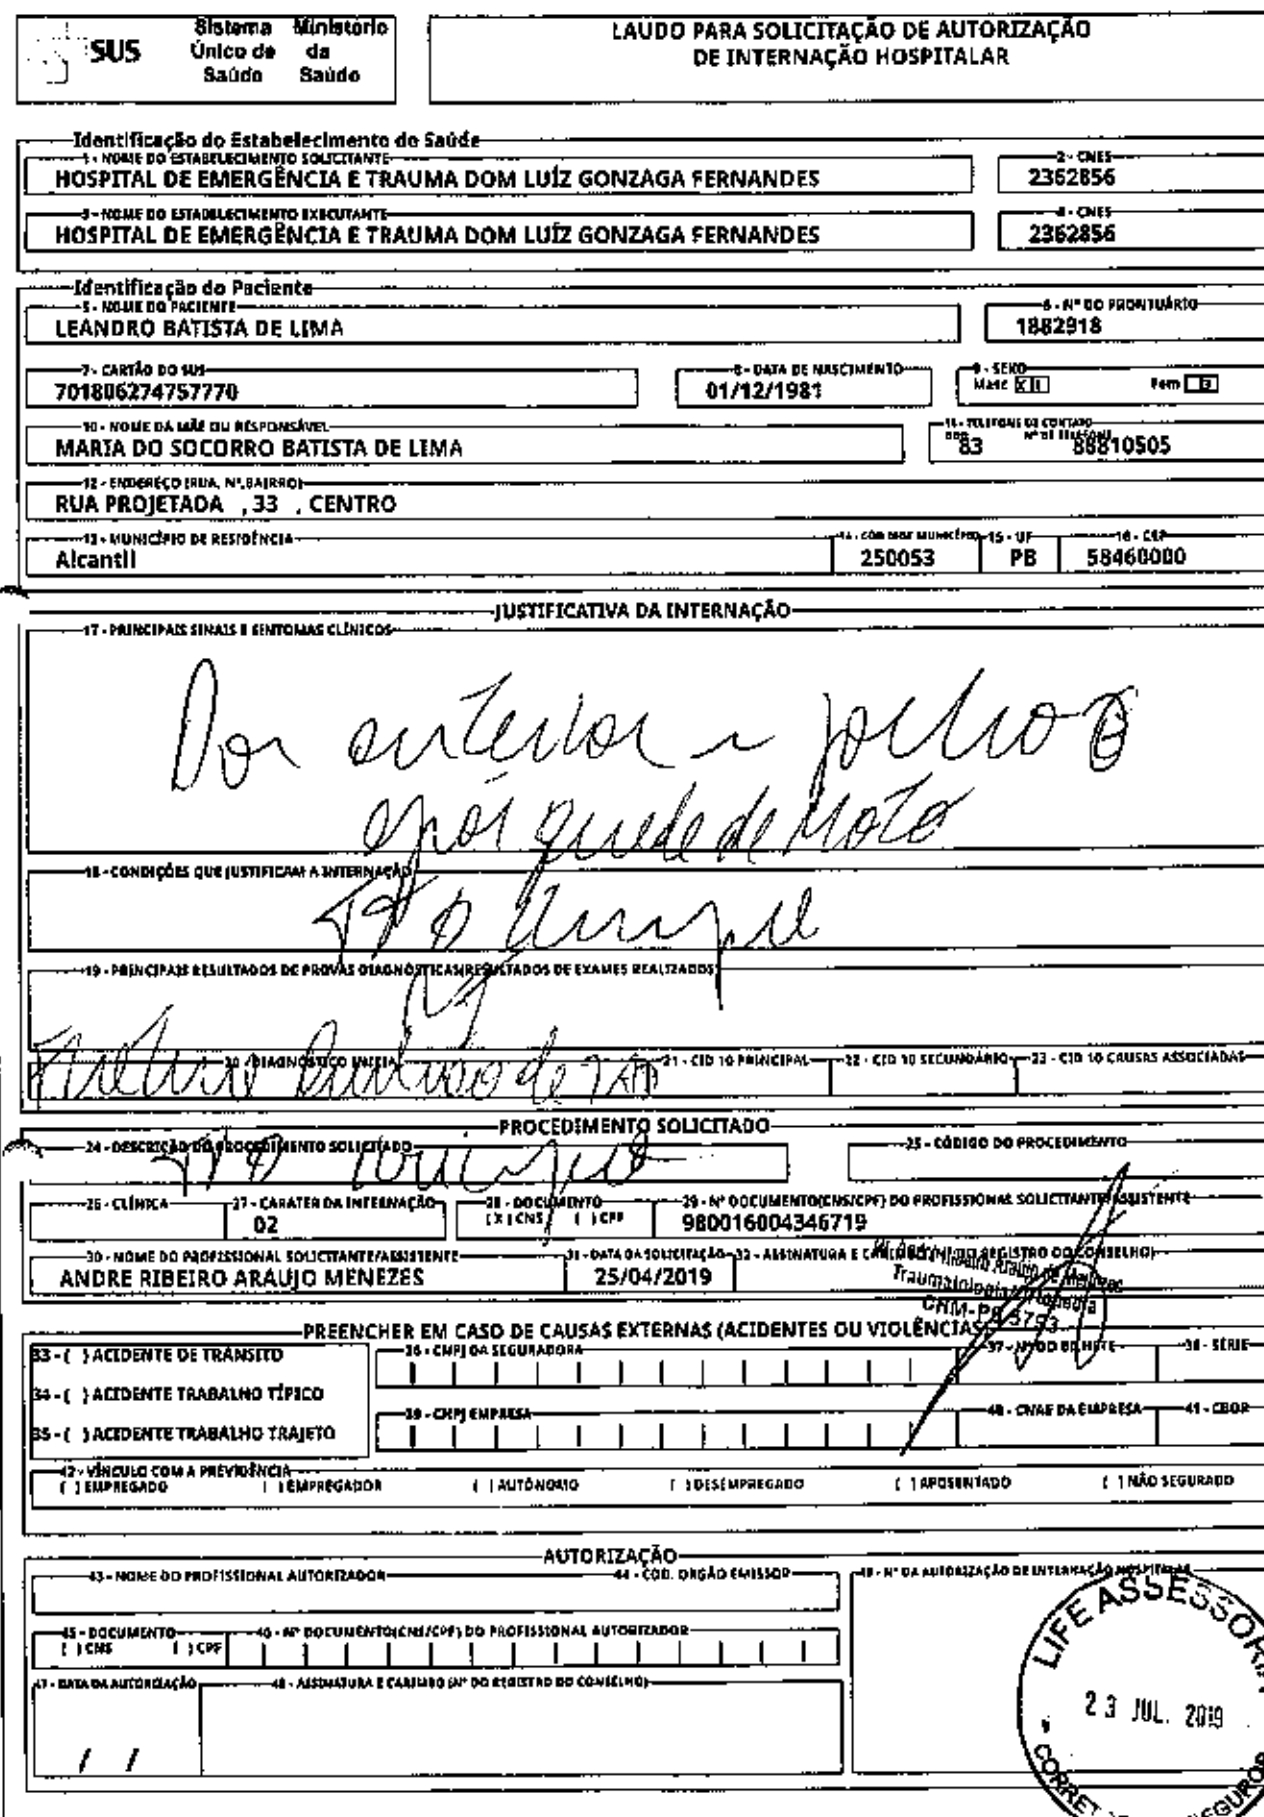 SUS
Sistema Único de Saúde
Ministério da Saúde
LAUDO PARA SOLICITAÇÃO DE AUTORIZAÇÃO
DE INTERNAÇÃO HOSPITALAR
Identificação do Estabelecimento de Saúde
1 - NOME DO ESTABELECIMENTO SOLICITANTE
2 - CNES
HOSPITAL DE EMERGÊNCIA E TRAUMA DOM LUÍZ GONZAGA FERNANDES
2362856
3 - NOME DO ESTABELECIMENTO EXECUTANTE
4 - CNES
HOSPITAL DE EMERGÊNCIA E TRAUMA DOM LUÍZ GONZAGA FERNANDES
2362856
Identificação do Paciente
5 - NOME DO PACIENTE
6 - Nº DO PRONTUÁRIO
LEANDRO BATISTA DE LIMA
1882918
7 - CARTÃO DO SUS
8 - DATA DE NASCIMENTO
9 - SEXO
701806274757770
01/12/1981
Masc X 1
Fem 3
10 - NOME DA MÃE OU RESPONSÁVEL
11 - TELEFONE DE CONTATO
DDD
Nº DE TELEFONE
MARIA DO SOCORRO BATISTA DE LIMA
83
88810505
12 - ENDEREÇO (RUA, Nº, BAIRRO)
RUA PROJETADA , 33 , CENTRO
13 - MUNICÍPIO DE RESIDÊNCIA
14 - CÓD IBGE MUNICÍPIO
15 - UF
16 - CEP
Alcantil
250053
PB
58460000
JUSTIFICATIVA DA INTERNAÇÃO
17 - PRINCIPAIS SINAIS E SINTOMAS CLÍNICOS
Dor anterior joelho
após queda de moto
18 - CONDIÇÕES QUE JUSTIFICAM A INTERNAÇÃO
TTO
19 - PRINCIPAIS RESULTADOS DE PROVAS DIAGNÓSTICAS(RESULTADOS DE EXAMES REALIZADOS)
20 - DIAGNÓSTICO INICIAL
21 - CID 10 PRINCIPAL
22 - CID 10 SECUNDÁRIO
23 - CID 10 CAUSAS ASSOCIADAS
Fratura
PROCEDIMENTO SOLICITADO
24 - DESCRIÇÃO DO PROCEDIMENTO SOLICITADO
25 - CÓDIGO DO PROCEDIMENTO
TTO
26 - CLÍNICA
27 - CARATER DA INTERNAÇÃO
28 - DOCUMENTO
29 - Nº DOCUMENTO(CNS/CPF) DO PROFISSIONAL SOLICITANTE/ASSISTENTE
02
( X ) CNS ( ) CPF
980016004346719
30 - NOME DO PROFISSIONAL SOLICITANTE/ASSISTENTE
31 - DATA DA SOLICITAÇÃO
32 - ASSINATURA E CARIMBO (Nº DO REGISTRO DO CONSELHO)
ANDRE RIBEIRO ARAUJO MENEZES
25/04/2019
Traumatologia
CRM-PB 3753
PREENCHER EM CASO DE CAUSAS EXTERNAS (ACIDENTES OU VIOLÊNCIAS)
33 - ( ) ACIDENTE DE TRÂNSITO
36 - CNPJ DA SEGURADORA
37 - Nº DO BILHETE
38 - SÉRIE
34 - ( ) ACIDENTE TRABALHO TÍPICO
35 - ( ) ACIDENTE TRABALHO TRAJETO
39 - CNPJ EMPRESA
40 - CNAE DA EMPRESA
41 - CBOR
42 - VÍNCULO COM A PREVIDÊNCIA
( ) EMPREGADO ( ) EMPREGADOR ( ) AUTÔNOMO ( ) DESEMPREGADO ( ) APOSENTADO ( ) NÃO SEGURADO
AUTORIZAÇÃO
43 - NOME DO PROFISSIONAL AUTORIZADOR
44 - COD. ORGÃO EMISSOR
49 - Nº DA AUTORIZAÇÃO DE INTERNAÇÃO HOSPITALAR
45 - DOCUMENTO
46 - Nº DOCUMENTO(CNS/CPF) DO PROFISSIONAL AUTORIZADOR
( ) CNS ( ) CPF
47 - DATA DA AUTORIZAÇÃO
48 - ASSINATURA E CARIMBO (Nº DO REGISTRO DO CONSELHO)
/ /
LIFE ASSESSORI
23 JUL. 2019